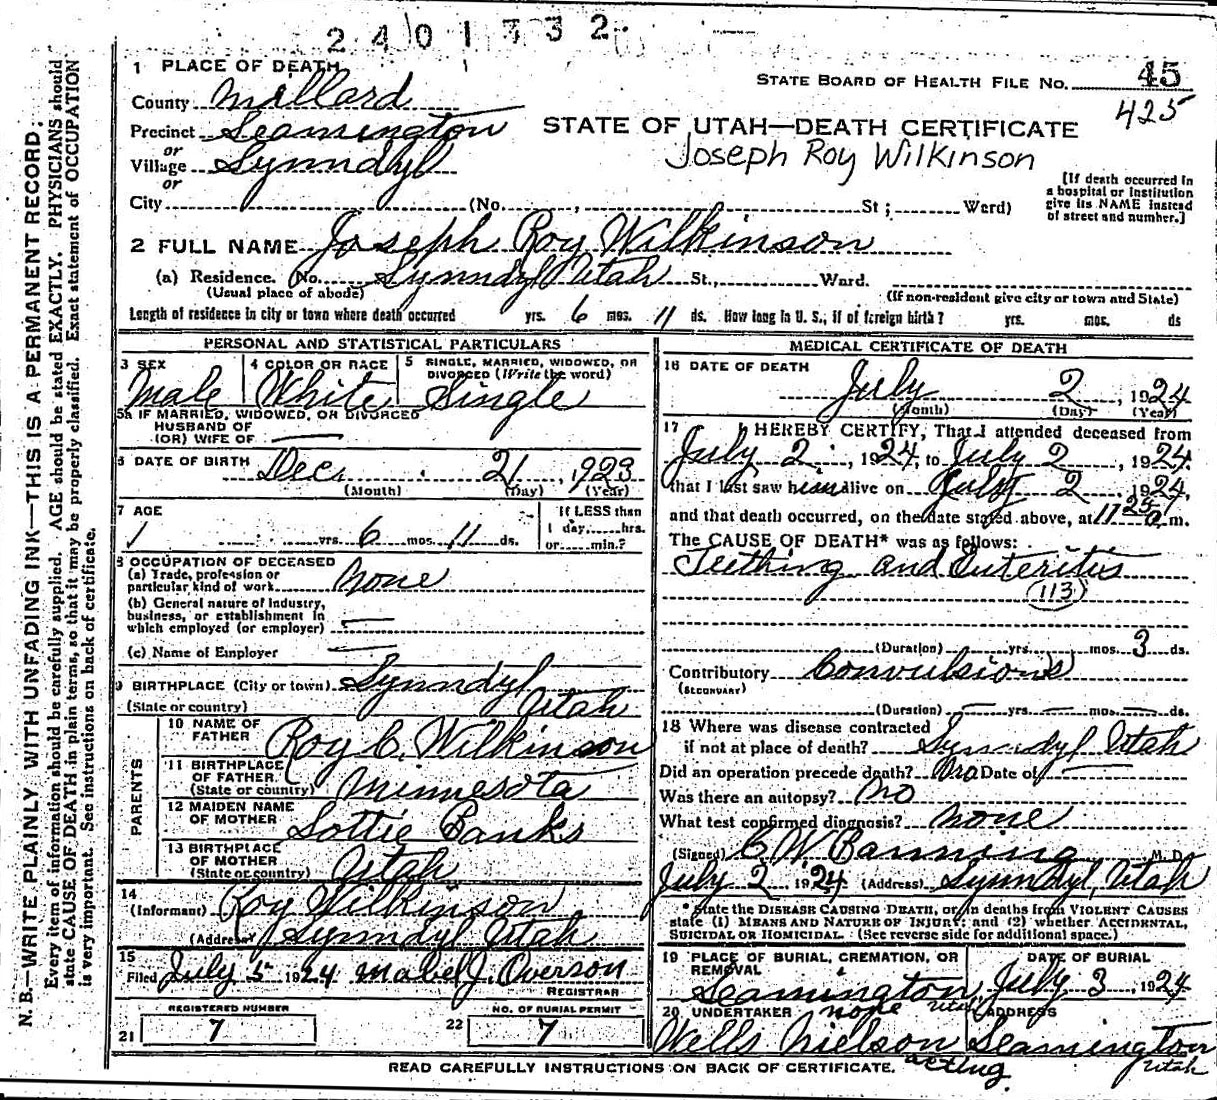 2401332.
1 PLACE OF DEATH
STATE BOARD OF HEALTH FILE No. 45
County Millard
425
Precinct Leamington
STATE OF UTAH—DEATH CERTIFICATE
or
Village Lynndyl
Joseph Roy Wilkinson
or
City (No. , St; Ward)
[If death occurred in
a hospital or institution
give its NAME instead
of street and number.]
2 FULL NAME Joseph Roy Wilkinson
(a) Residence. No. Lynndyl Utah St., Ward.
(Usual place of abode) (If non-resident give city or town and State)
Length of residence in city or town where death occurred yrs. 6 mos. 11 ds. How long in U. S., if of foreign birth? yrs. mos. ds
PERSONAL AND STATISTICAL PARTICULARS
3 SEX 4 COLOR OR RACE 5 SINGLE, MARRIED, WIDOWED, OR
DIVORCED (Write the word)
Male White Single
5a IF MARRIED, WIDOWED, OR DIVORCED
HUSBAND OF
(OR) WIFE OF
6 DATE OF BIRTH Dec. 21, 1923
(Month) (Day) (Year)
7 AGE
If LESS than
1 day, hrs.
or min.?
1 yrs. 6 mos. 11 ds.
8 OCCUPATION OF DECEASED
(a) Trade, profession or
particular kind of work none
(b) General nature of industry,
business, or establishment in
which employed (or employer)
(c) Name of Employer
9 BIRTHPLACE (City or town) Lynndyl
(State or country) Utah
PARENTS
10 NAME OF
FATHER Roy C. Wilkinson
11 BIRTHPLACE
OF FATHER
(State or country) Minnesota
12 MAIDEN NAME
OF MOTHER Lottie Banks
13 BIRTHPLACE
OF MOTHER
(State or country) Utah
14
(Informant) Roy Wilkinson
(Address) Lynndyl Utah
15
Filed July 5 1924 Mabel J. Overson
REGISTRAR
REGISTERED NUMBER NO. OF BURIAL PERMIT
21 7 22 7
MEDICAL CERTIFICATE OF DEATH
16 DATE OF DEATH
July 2, 1924
(Month) (Day) (Year)
17 I HEREBY CERTIFY, That I attended deceased from
July 2, 1924, to July 2, 1924.
that I last saw him alive on July 2, 1924,
and that death occurred, on the date stated above, at 11 25 a m.
The CAUSE OF DEATH* was as follows:
Teething and Enteritis
(113)
(Duration) yrs. mos. 3 ds.
Contributory Convulsions
(SECONDARY)
(Duration) — yrs. — mos. — ds.
18 Where was disease contracted
if not at place of death? Lynndyl Utah
Did an operation precede death? no Date of —
Was there an autopsy? no
What test confirmed diagnosis? none
(Signed) C. W. Banning M. D.
July 2 1924 (Address) Lynndyl, Utah
*State the DISEASE CAUSING DEATH, or in deaths from VIOLENT CAUSES
state (1) MEANS AND NATURE OF INJURY; and (2) whether ACCIDENTAL,
SUICIDAL OR HOMICIDAL. (See reverse side for additional space.)
19 PLACE OF BURIAL, CREMATION, OR
REMOVAL
DATE OF BURIAL
Leamington Utah July 3, 1924
20 UNDERTAKER none ADDRESS
Wells Nielson acting Leamington Utah
READ CAREFULLY INSTRUCTIONS ON BACK OF CERTIFICATE.
N. B.—WRITE PLAINLY WITH UNFADING INK—THIS IS A PERMANENT RECORD.
Every item of information should be carefully supplied. AGE should be stated EXACTLY. PHYSICIANS should
state CAUSE OF DEATH in plain terms, so that it may be properly classified. Exact statement of OCCUPATION
is very important. See instructions on back of certificate.